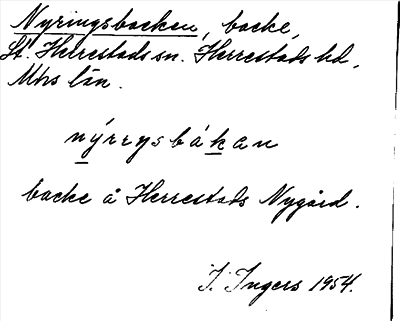 Nyringsbacken, backe,
St. Herrestads sn. Herrestads hd,
Mhs län.
nýrrysbákan
backe å Herrestads Nygård.
I. Ingers 1954.